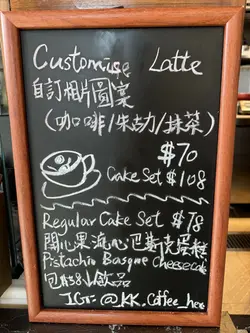 Customise Latte
自訂相片圖案
(咖啡/朱古力/抹茶)
$70
Cake Set $108
Regular Cake Set $78
開心果流心巴斯克蛋糕
Pistachio Basque Cheesecake
包特飲品
IG: @KK.Coffee_here